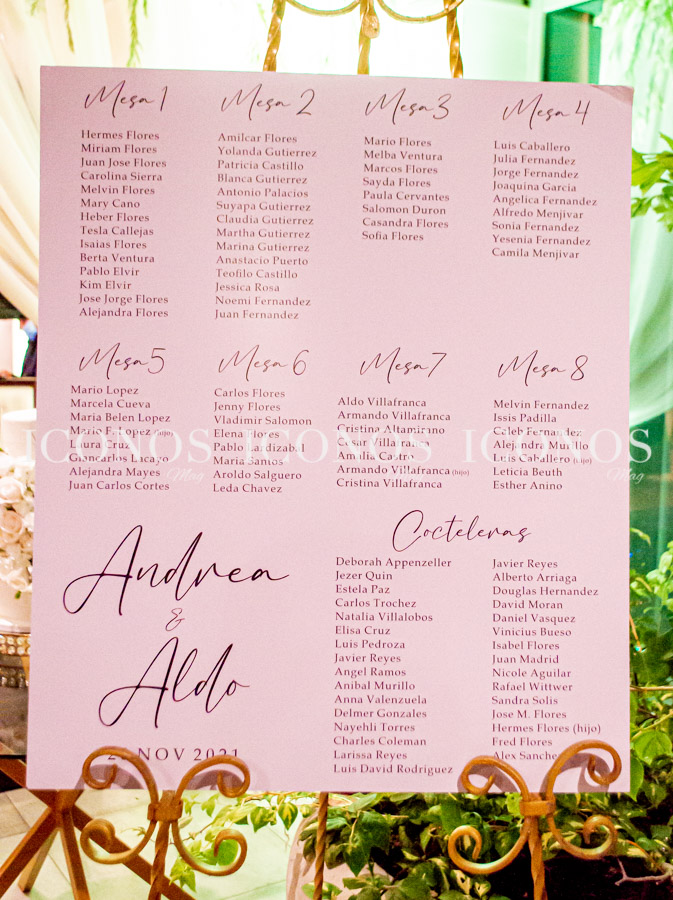 Mesa 1
Hermes Flores
Miriam Flores
Juan Jose Flores
Carolina Sierra
Melvin Flores
Mary Cano
Heber Flores
Tesla Callejas
Isaias Flores
Berta Ventura
Pablo Elvir
Kim Elvir
Jose Jorge Flores
Alejandra Flores
Mesa 2
Amilcar Flores
Yolanda Gutierrez
Patricia Castillo
Blanca Gutierrez
Antonio Palacios
Suyapa Gutierrez
Claudia Gutierrez
Martha Gutierrez
Marina Gutierrez
Anastacio Puerto
Teofilo Castillo
Jessica Rosa
Noemi Fernandez
Juan Fernandez
Mesa 3
Mario Flores
Melba Ventura
Marcos Flores
Sayda Flores
Paula Cervantes
Salomon Duron
Casandra Flores
Sofia Flores
Mesa 4
Luis Caballero
Julia Fernandez
Jorge Fernandez
Joaquina Garcia
Angelica Fernandez
Alfredo Menjivar
Sonia Fernandez
Yesenia Fernandez
Camila Menjivar
Mesa 5
Mario Lopez
Marcela Cueva
Maria Belen Lopez
Mario F. Lopez (hijo)
Laura Cruz
Giancarlos Lacayo
Alejandra Mayes
Juan Carlos Cortes
Mesa 6
Carlos Flores
Jenny Flores
Vladimir Salomon
Elena Flores
Pablo Lardizabal
Maria Santos
Aroldo Salguero
Leda Chavez
Mesa 7
Aldo Villafranca
Armando Villafranca
Cristina Altamirano
Cesar Villafranca
Amalia Castro
Armando Villafranca (hijo)
Cristina Villafranca
Mesa 8
Melvin Fernandez
Issis Padilla
Caleb Fernandez
Alejandra Murillo
Luis Caballero (hijo)
Leticia Beuth
Esther Anino
ICONOS ICONOS ICONOS
Mag Mag Mag
Andrea
&
Aldo
NOV 2021
Cocteleras
Deborah Appenzeller
Jezer Quin
Estela Paz
Carlos Trochez
Natalia Villalobos
Elisa Cruz
Luis Pedroza
Javier Reyes
Angel Ramos
Anibal Murillo
Anna Valenzuela
Delmer Gonzales
Nayehli Torres
Charles Coleman
Larissa Reyes
Luis David Rodriguez
Javier Reyes
Alberto Arriaga
Douglas Hernandez
David Moran
Daniel Vasquez
Vinicius Bueso
Isabel Flores
Juan Madrid
Nicole Aguilar
Rafael Wittwer
Sandra Solis
Jose M. Flores
Hermes Flores (hijo)
Fred Flores
Alex Sanchez